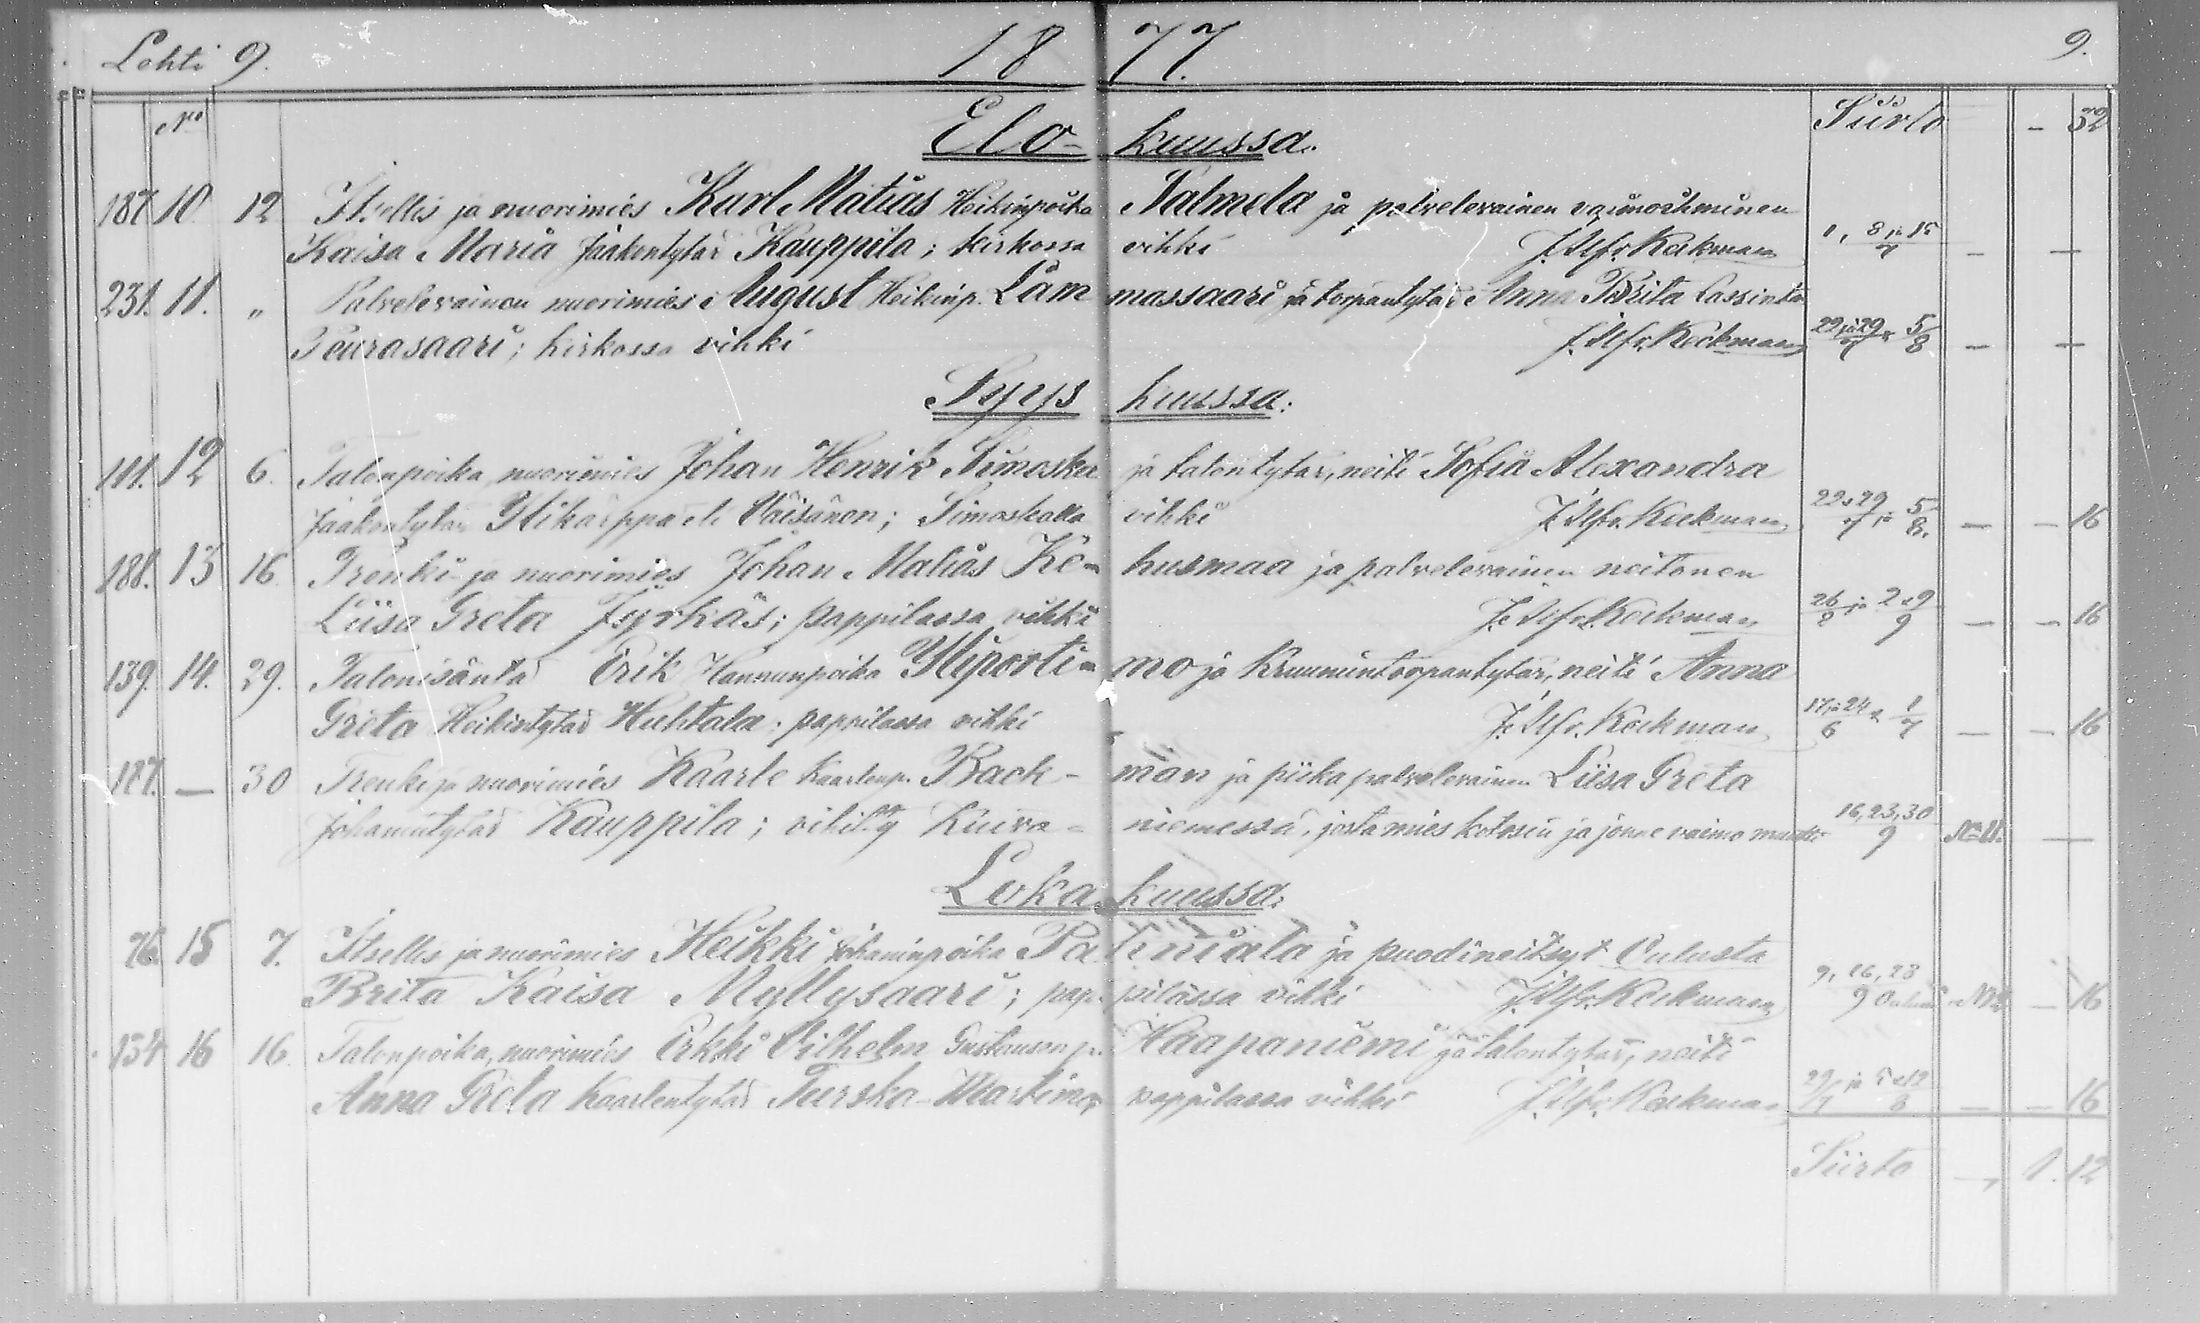 Lehti 9. 1877. 9.
No Elokuussa. Siirto - 32
187. 10. 12 Itsellis ja nuorimies Karl Matias Heikinpoika Salmela ja palvelevainen vaimoihminen
Kaisa Maria Jaakontytär Kauppila; kirkossa vihki J. Alfr. Keckman 1, 8 ja 15/7 - -
231. 11. " Palvelevainen nuorimies August Heikinp. Lammassaari ja torpantytär Anna Brita Lassintr
Peurasaari; kirkossa vihki J. Alfr. Keckman 22 ja 29/7 & 5/8 - -
Syyskuussa:
111. 12 6. Talonpoika, nuorimies Johan Henrik Simoska ja talontytär, neiti Sofia Alexandra
Jaakontytär Ylikärppä eli Väisänen; Simoskalla vihki J. Alfr. Keckman 22 & 29/7 ja 5/8. - - 16
188. 13 16. Trenki ja nuorimies Johan Matias Kehusmaa ja palvelevainen neitonen
Liisa Greta Jyrkäs; pappilassa vihki J. Alfr. Keckman 26/8 ja 2 & 9/9 - - 16
139. 14. 29. Talonisäntä Erik Hannunpoika Yliportimo ja Kruununtorpantytär, neiti Anna
Greta Heikintytär Huhtala; pappilassa vihki J. Alfr. Keckman 17 ja 24/6 & 1/7 - - 16
187. - 30 Trenki ja nuorimies Kaarle Kaarlenp. Backman ja piika palvelevainen Liisa Greta
Johanintytär Kauppila; Kuivaniemessä, josta mies kotosin ja jonne vaimo 16, 23, 30/9 -
Lokakuussa:
76. 15 7. Itsellis ja nuorimies Heikki Johaninpoika Paliniala ja puodineitsyt Oulusta
Brita Kaisa Myllysaari; pappilassa vihki J. Alfr. Keckman 9, 16, 23/9 - 16
134 16 16. Talonpoika, nuorimies Erkki Vilhelm Haapaniemi ja talontytär, neiti
Anna Greta Kaarlentytär Turska-Martimo, pappilassa vihki J. Alfr. Keckman 29/7 ja 5 & 12/8 - - 16
Siirto - 1. 12